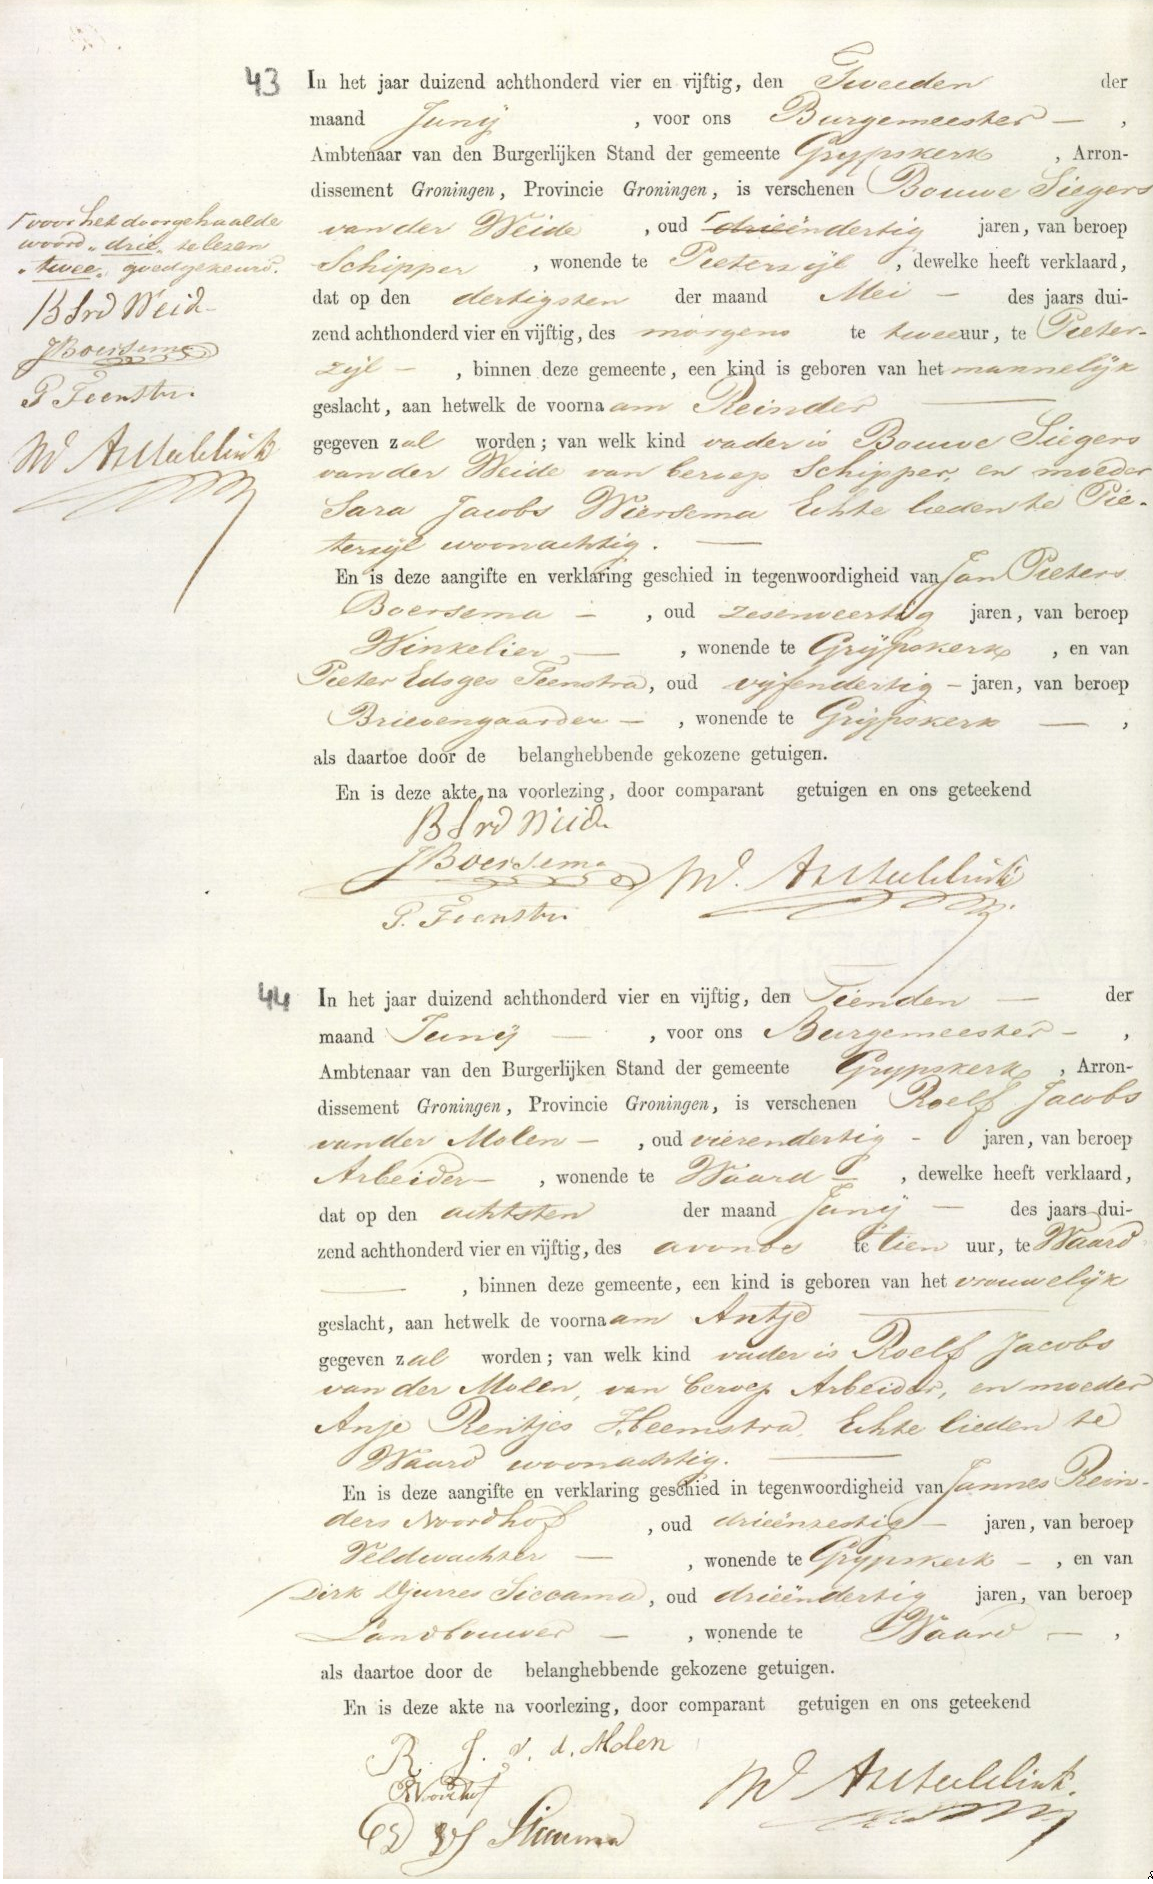 43
In het jaar duizend achthonderd vier en vijftig, den Tweeden der
maand Junij , voor ons Burgemeester — ,
Ambtenaar van den Burgerlijken Stand der gemeente Grypskerk , Arron-
dissement Groningen, Provincie Groningen, is verschenen Bouwe Siegers
van der Weide , oud drieëndertig jaren, van beroep
Schipper , wonende te Pieterzijl , dewelke heeft verklaard,
dat op den dertigsten der maand Mei — des jaars dui-
zend achthonderd vier en vijftig, des morgens te twee uur, te Pieter-
zijl — , binnen deze gemeente, een kind is geboren van het mannelijk
geslacht, aan hetwelk de voornaam Reinder —
gegeven zal worden; van welk kind vader is Bouwe Siegers
van der Weide van beroep Schipper, en moeder
Sara Jacobs Wiersema Echte lieden te Pie-
terzijl woonachtig. —
En is deze aangifte en verklaring geschied in tegenwoordigheid van Jan Pieters
Boersema — , oud zesenveertig jaren, van beroep
Winkelier — , wonende te Grijpskerk , en van
Pieter Edsges Teenstra, oud vijfendertig — jaren, van beroep
Brievengaarder — , wonende te Grijpskerk — ,
als daartoe door de belanghebbende gekozene getuigen.
En is deze akte na voorlezing, door comparant getuigen en ons geteekend
B S vd Weide
JBoersema
P. Teenstra
voor het doorgehaalde
woord "drie" te lezen
"twee" goedgekeurd.
B S vd Weide
JBoersema
P Teenstra
44
In het jaar duizend achthonderd vier en vijftig, den Tienden — der
maand Junij — , voor ons Burgemeester — ,
Ambtenaar van den Burgerlijken Stand der gemeente Grypskerk , Arron-
dissement Groningen, Provincie Groningen, is verschenen Roelf Jacobs
van der Molen — , oud vierendertig - jaren, van beroep
Arbeider — , wonende te Waard , dewelke heeft verklaard,
dat op den achtsten der maand Junij — des jaars dui-
zend achthonderd vier en vijftig, des avonds te tien uur, te Waard
— , binnen deze gemeente, een kind is geboren van het vrouwelijk
geslacht, aan hetwelk de voornaam Antje —
gegeven zal worden; van welk kind vader is Roelf Jacobs
van der Molen, van beroep Arbeider, en moeder
Anje Rentjes Heemstra, Echte lieden te
Waard woonachtig. —
En is deze aangifte en verklaring geschied in tegenwoordigheid van Jannes Rein-
ders Noordhof , oud drieënzestig — jaren, van beroep
Veldwachter — , wonende te Grypskerk — , en van
Dirk Djurres Siccama, oud drieëndertig jaren, van beroep
Landbouwer — , wonende te Waard — ,
als daartoe door de belanghebbende gekozene getuigen.
En is deze akte na voorlezing, door comparant getuigen en ons geteekend
R. J. v. d. Molen
Noordhof
Siccama